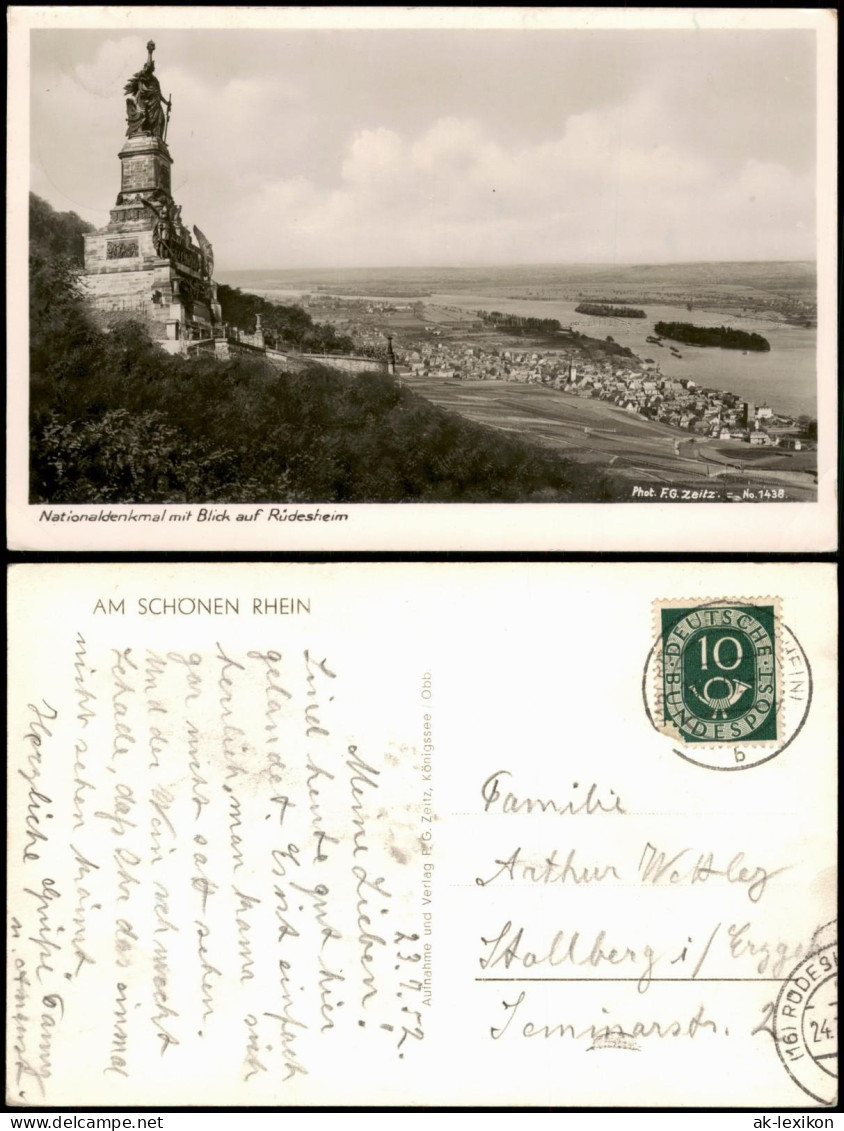 Phot. F.G. Zeitz. - No. 1438
Nationaldenkmal mit Blick auf Rüdesheim
AM SCHÖNEN RHEIN
23.9.52.
Meine Lieben!
Sind heute gut hier
gelandet. Es ist einfach
herrlich, man kann sich
gar nicht satt sehen.
Und der Wein schmeckt
Schade, daß Ihr das einmal
nicht sehen könnt
Herzliche Grüße Fanny
u. August.
Aufnahme und Verlag F. G. Zeitz, Königssee / Obb.
DEUTSCHE
10
BUNDESPOST
b
Familie
Arthur
Stollberg i/Erzgeb
Seminarstr. 2
(16) RÜDESH
24.
ak-lexikon